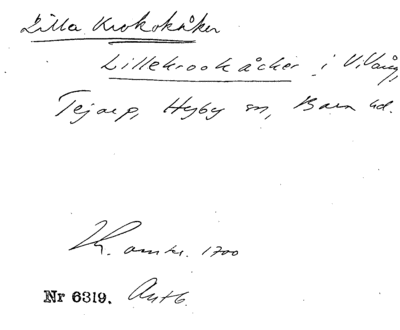 Lilla Krokåker
Lillekrookåcker i V. Vång,
Tejarp, Hyby sn, Bara hd.
omkr. 1700
Nr 6319.